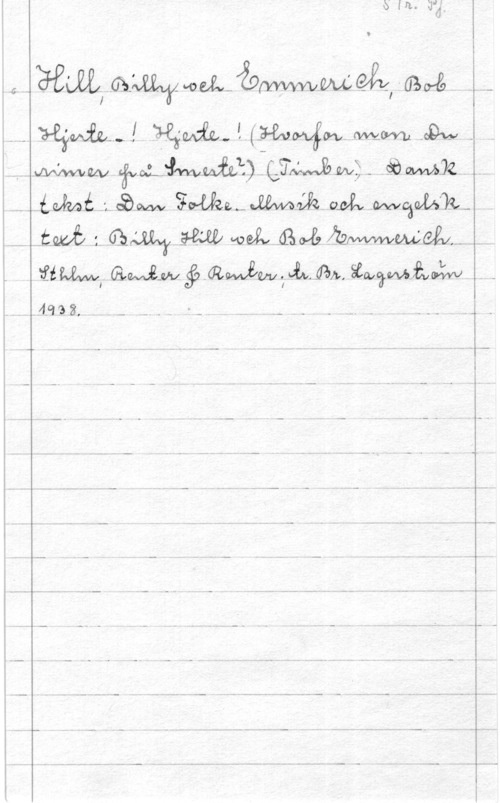 S Tr. Pf.
Hill, Billy och Emmerich, Bob
Hjerte - ! Hjerte - ! (Hvorfor mon Du
rimer på Smerte?) (Timber). Dansk
tekst : Dan Folke. Musik och engelsk
text : Billy Hill och Bob Emmerich.
Sthlm, Reuter & Reuter; tr. Br. Lagerström
1938.